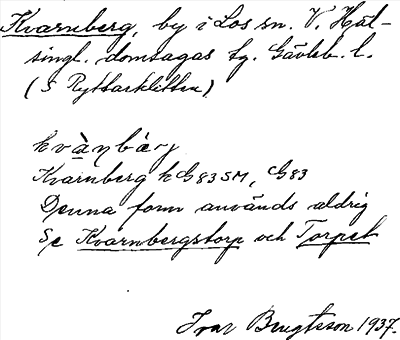 Kvarnberg, by i Los sn. V. Häl-
singl. domsagas tg. Gävleb. l.
(S Ryttarklitten)
kvàṇbærj
Kvarnberg k G83SM, G83
Denna form används aldrig
Se Kvarnbergstorp och Torpet
Ivar Bengtsson 1937.